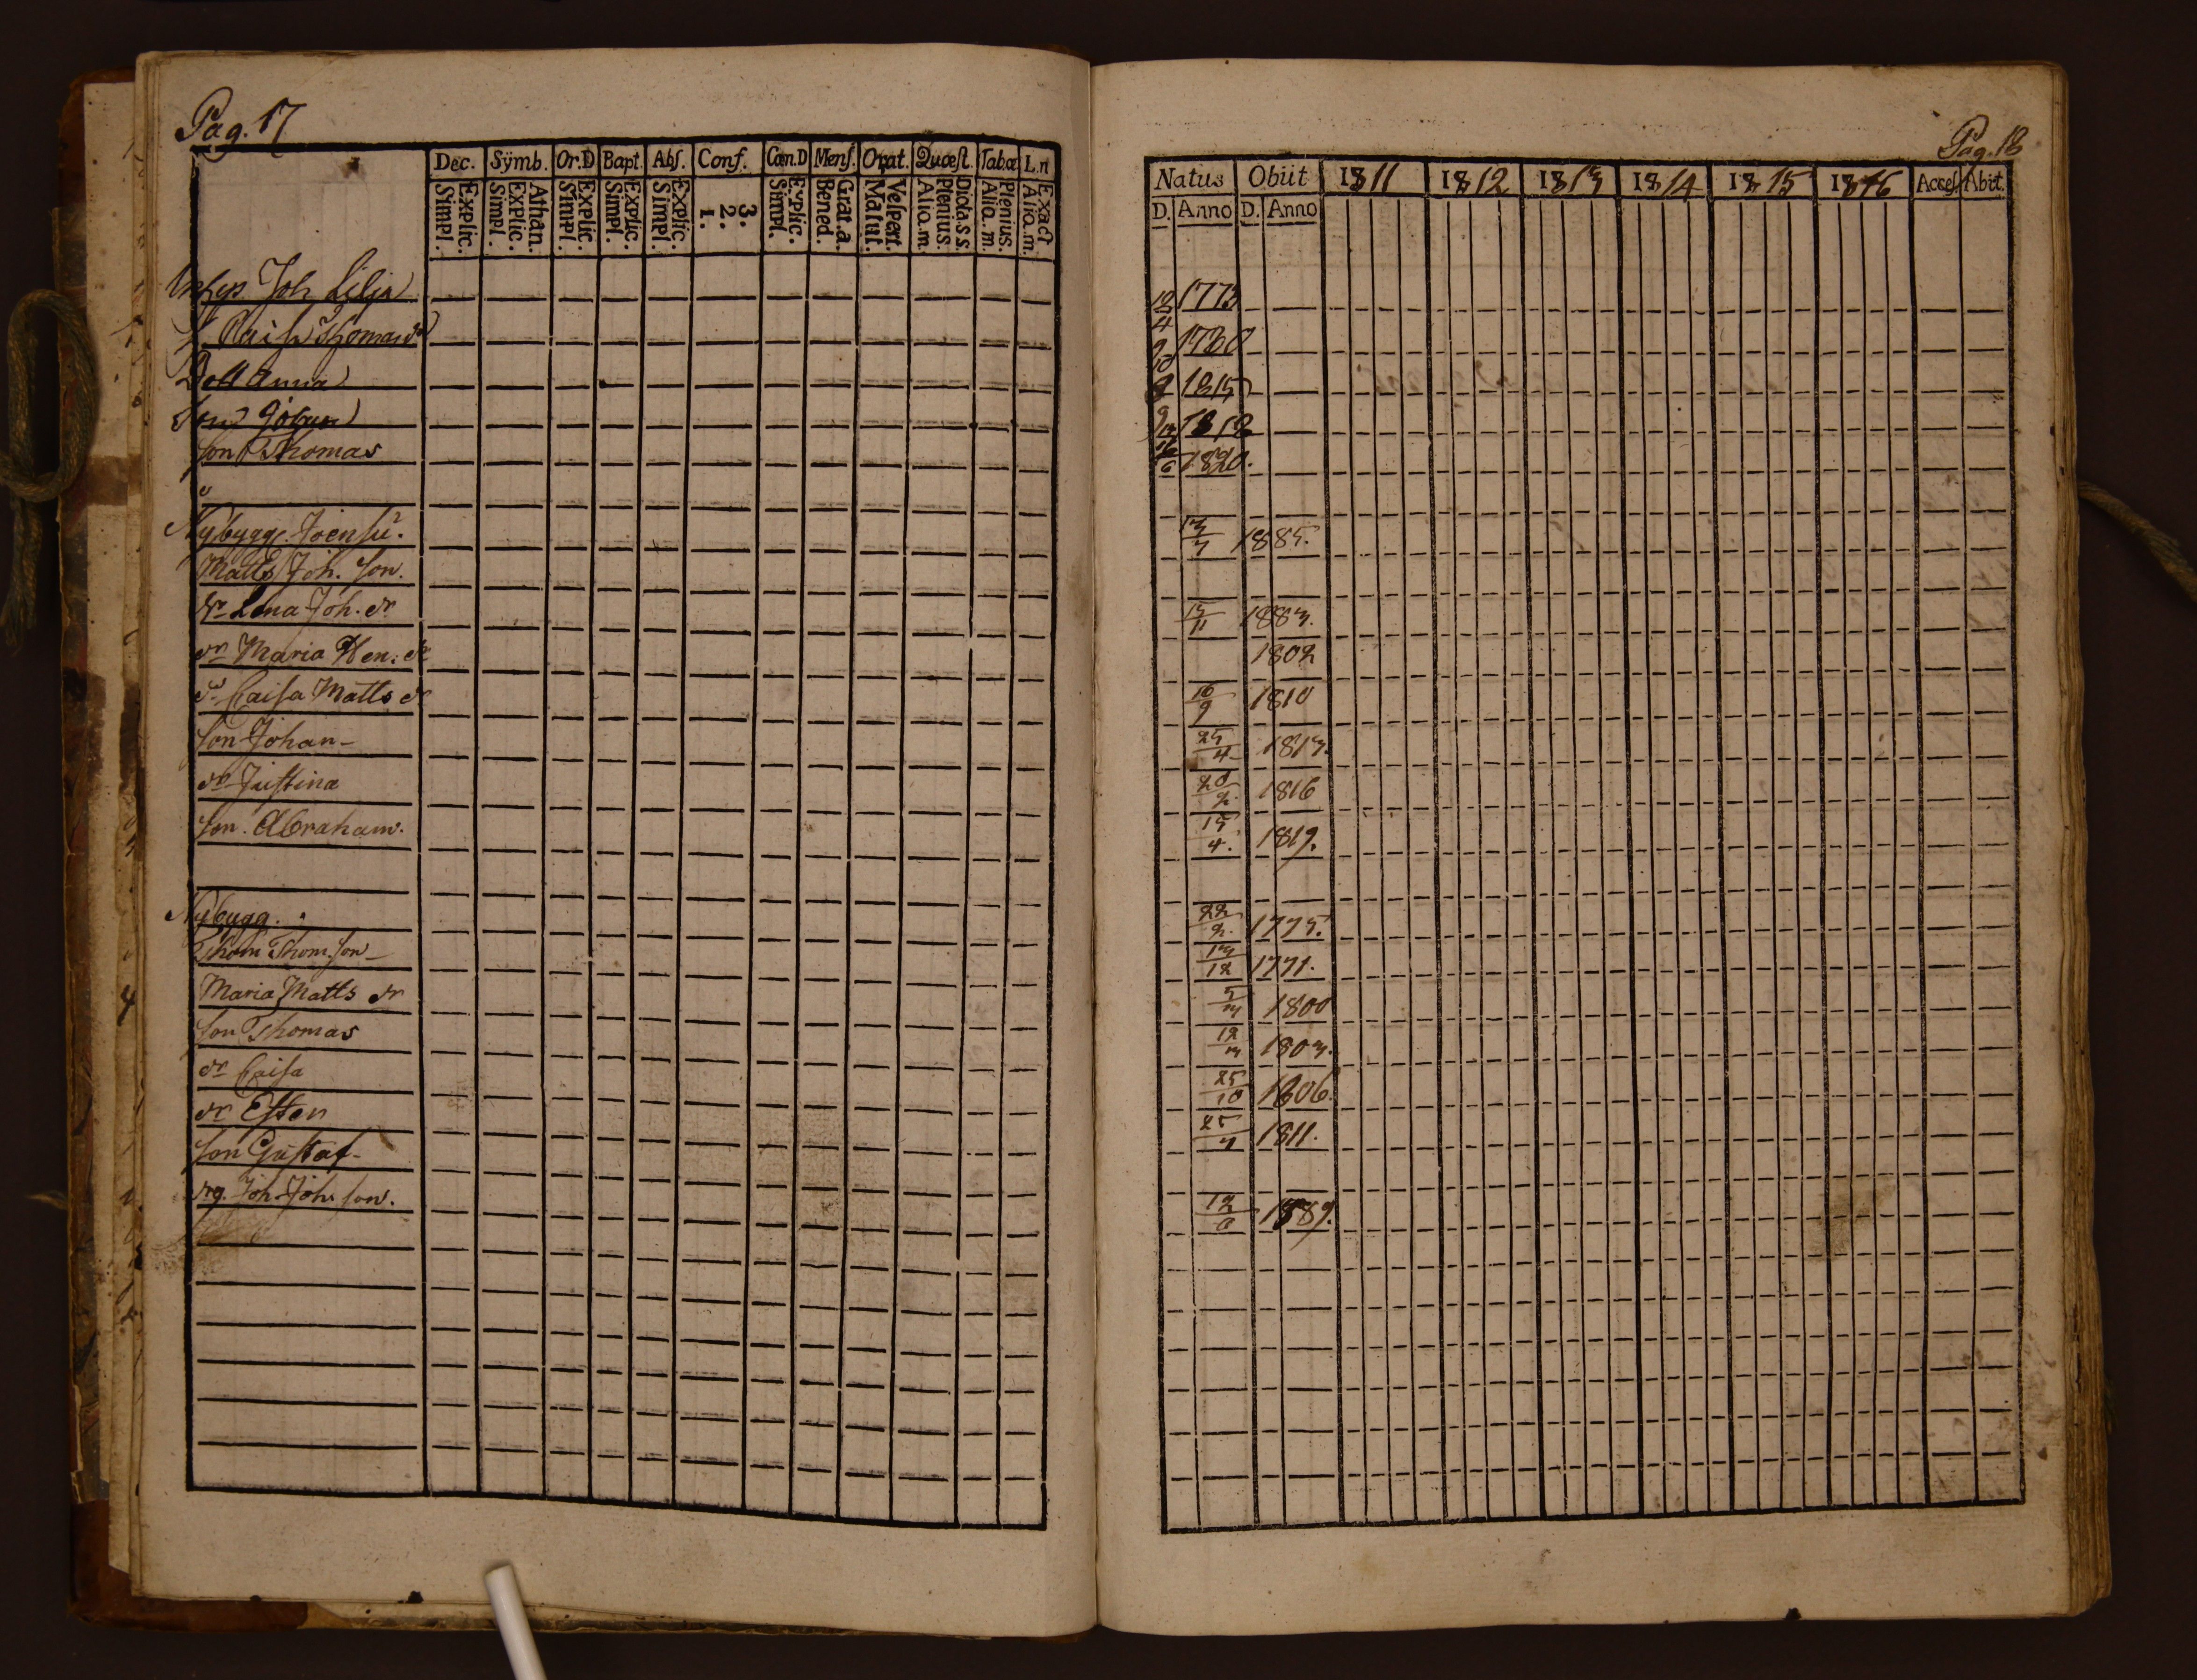 Pag. 17
Dec. Sÿmb. Or.D Bapt. Abſ. Conf. Cœn.D Menſ. Orat. Quæſt. Tabœ L.n
Explic. Simpl. Athan. Explic. Simpl. Explic. Simpl. Explic. Simpl. Explic. Simpl. 3. 2. 1. Explic. Simpl. Grat.a. Bened. Veſpert. Matut. Dicta.s.s. Plenius. Alio.m. Plenius. Alia.m. Exact. Alio.m.
Joh Lilja
Caisa Thomas dr
Dott Anna
Son Johan
Son Thomas
Nybygg. Joensu.
Matts Joh. Son.
dr Lena Joh. dr
dr Maria Hen. dr
dr Caisa Matts dr
Son Johan
dr Justina
Son. Abraham.
Nybygg.
Thom Thom. son
Maria Matts dr
Son Thomas
dr Caisa
dr Ester
Son Gustaf
drg. Joh. Joh. son.
Pag. 18
Natus Obiit 1811 1812 1813 1814 1815 1816 Acceſ. Abiit.
D. Anno D. Anno
12/4 1773
9/10 1780
1815
1818
1820.
13/7 1885.
15/11 1883.
1802
16/9 1810
25/4 1813.
20/2 1816
15/4. 1819.
22/2. 1775.
13/12 1771.
5/3 1800
12/3 1803.
25/10 1806.
25/7 1811.
12/6 1889.